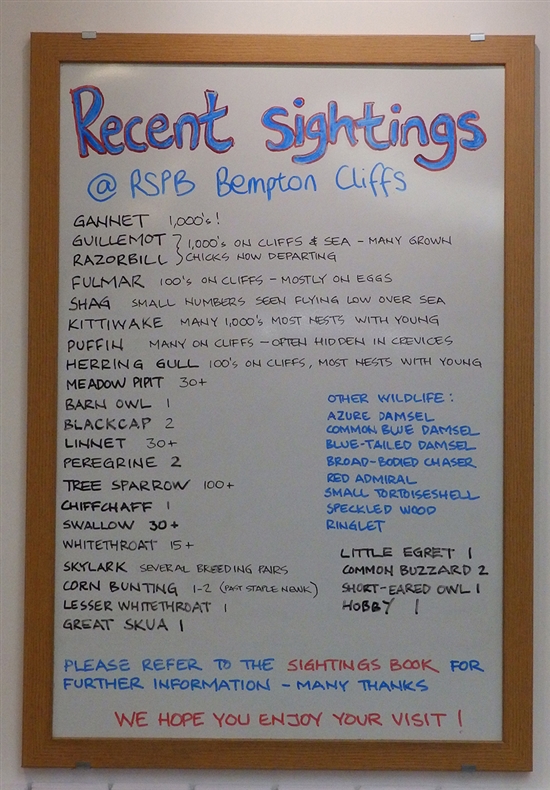 Recent Sightings
@ RSPB Bempton Cliffs
GANNET 1,000's!
GUILLEMOT } 1,000's ON CLIFFS & SEA - MANY GROWN
RAZORBILL } CHICKS NOW DEPARTING
FULMAR 100's ON CLIFFS - MOSTLY ON EGGS
SHAG SMALL NUMBERS SEEN FLYING LOW OVER SEA
KITTIWAKE MANY 1,000's MOST NESTS WITH YOUNG
PUFFIN MANY ON CLIFFS - OFTEN HIDDEN IN CREVICES
HERRING GULL 100's ON CLIFFS, MOST NESTS WITH YOUNG
MEADOW PIPIT 30+
BARN OWL 1
BLACKCAP 2
LINNET 30+
PEREGRINE 2
TREE SPARROW 100+
CHIFFCHAFF 1
SWALLOW 30+
WHITETHROAT 15+
SKYLARK SEVERAL BREEDING PAIRS
CORN BUNTING 1-2 (PAST STAPLE NEWK)
LESSER WHITETHROAT 1
GREAT SKUA 1
OTHER WILDLIFE:
AZURE DAMSEL
COMMON BLUE DAMSEL
BLUE-TAILED DAMSEL
BROAD-BODIED CHASER
RED ADMIRAL
SMALL TORTOISESHELL
SPECKLED WOOD
RINGLET
LITTLE EGRET 1
COMMON BUZZARD 2
SHORT-EARED OWL 1
HOBBY 1
PLEASE REFER TO THE SIGHTINGS BOOK FOR
FURTHER INFORMATION - MANY THANKS
WE HOPE YOU ENJOY YOUR VISIT!